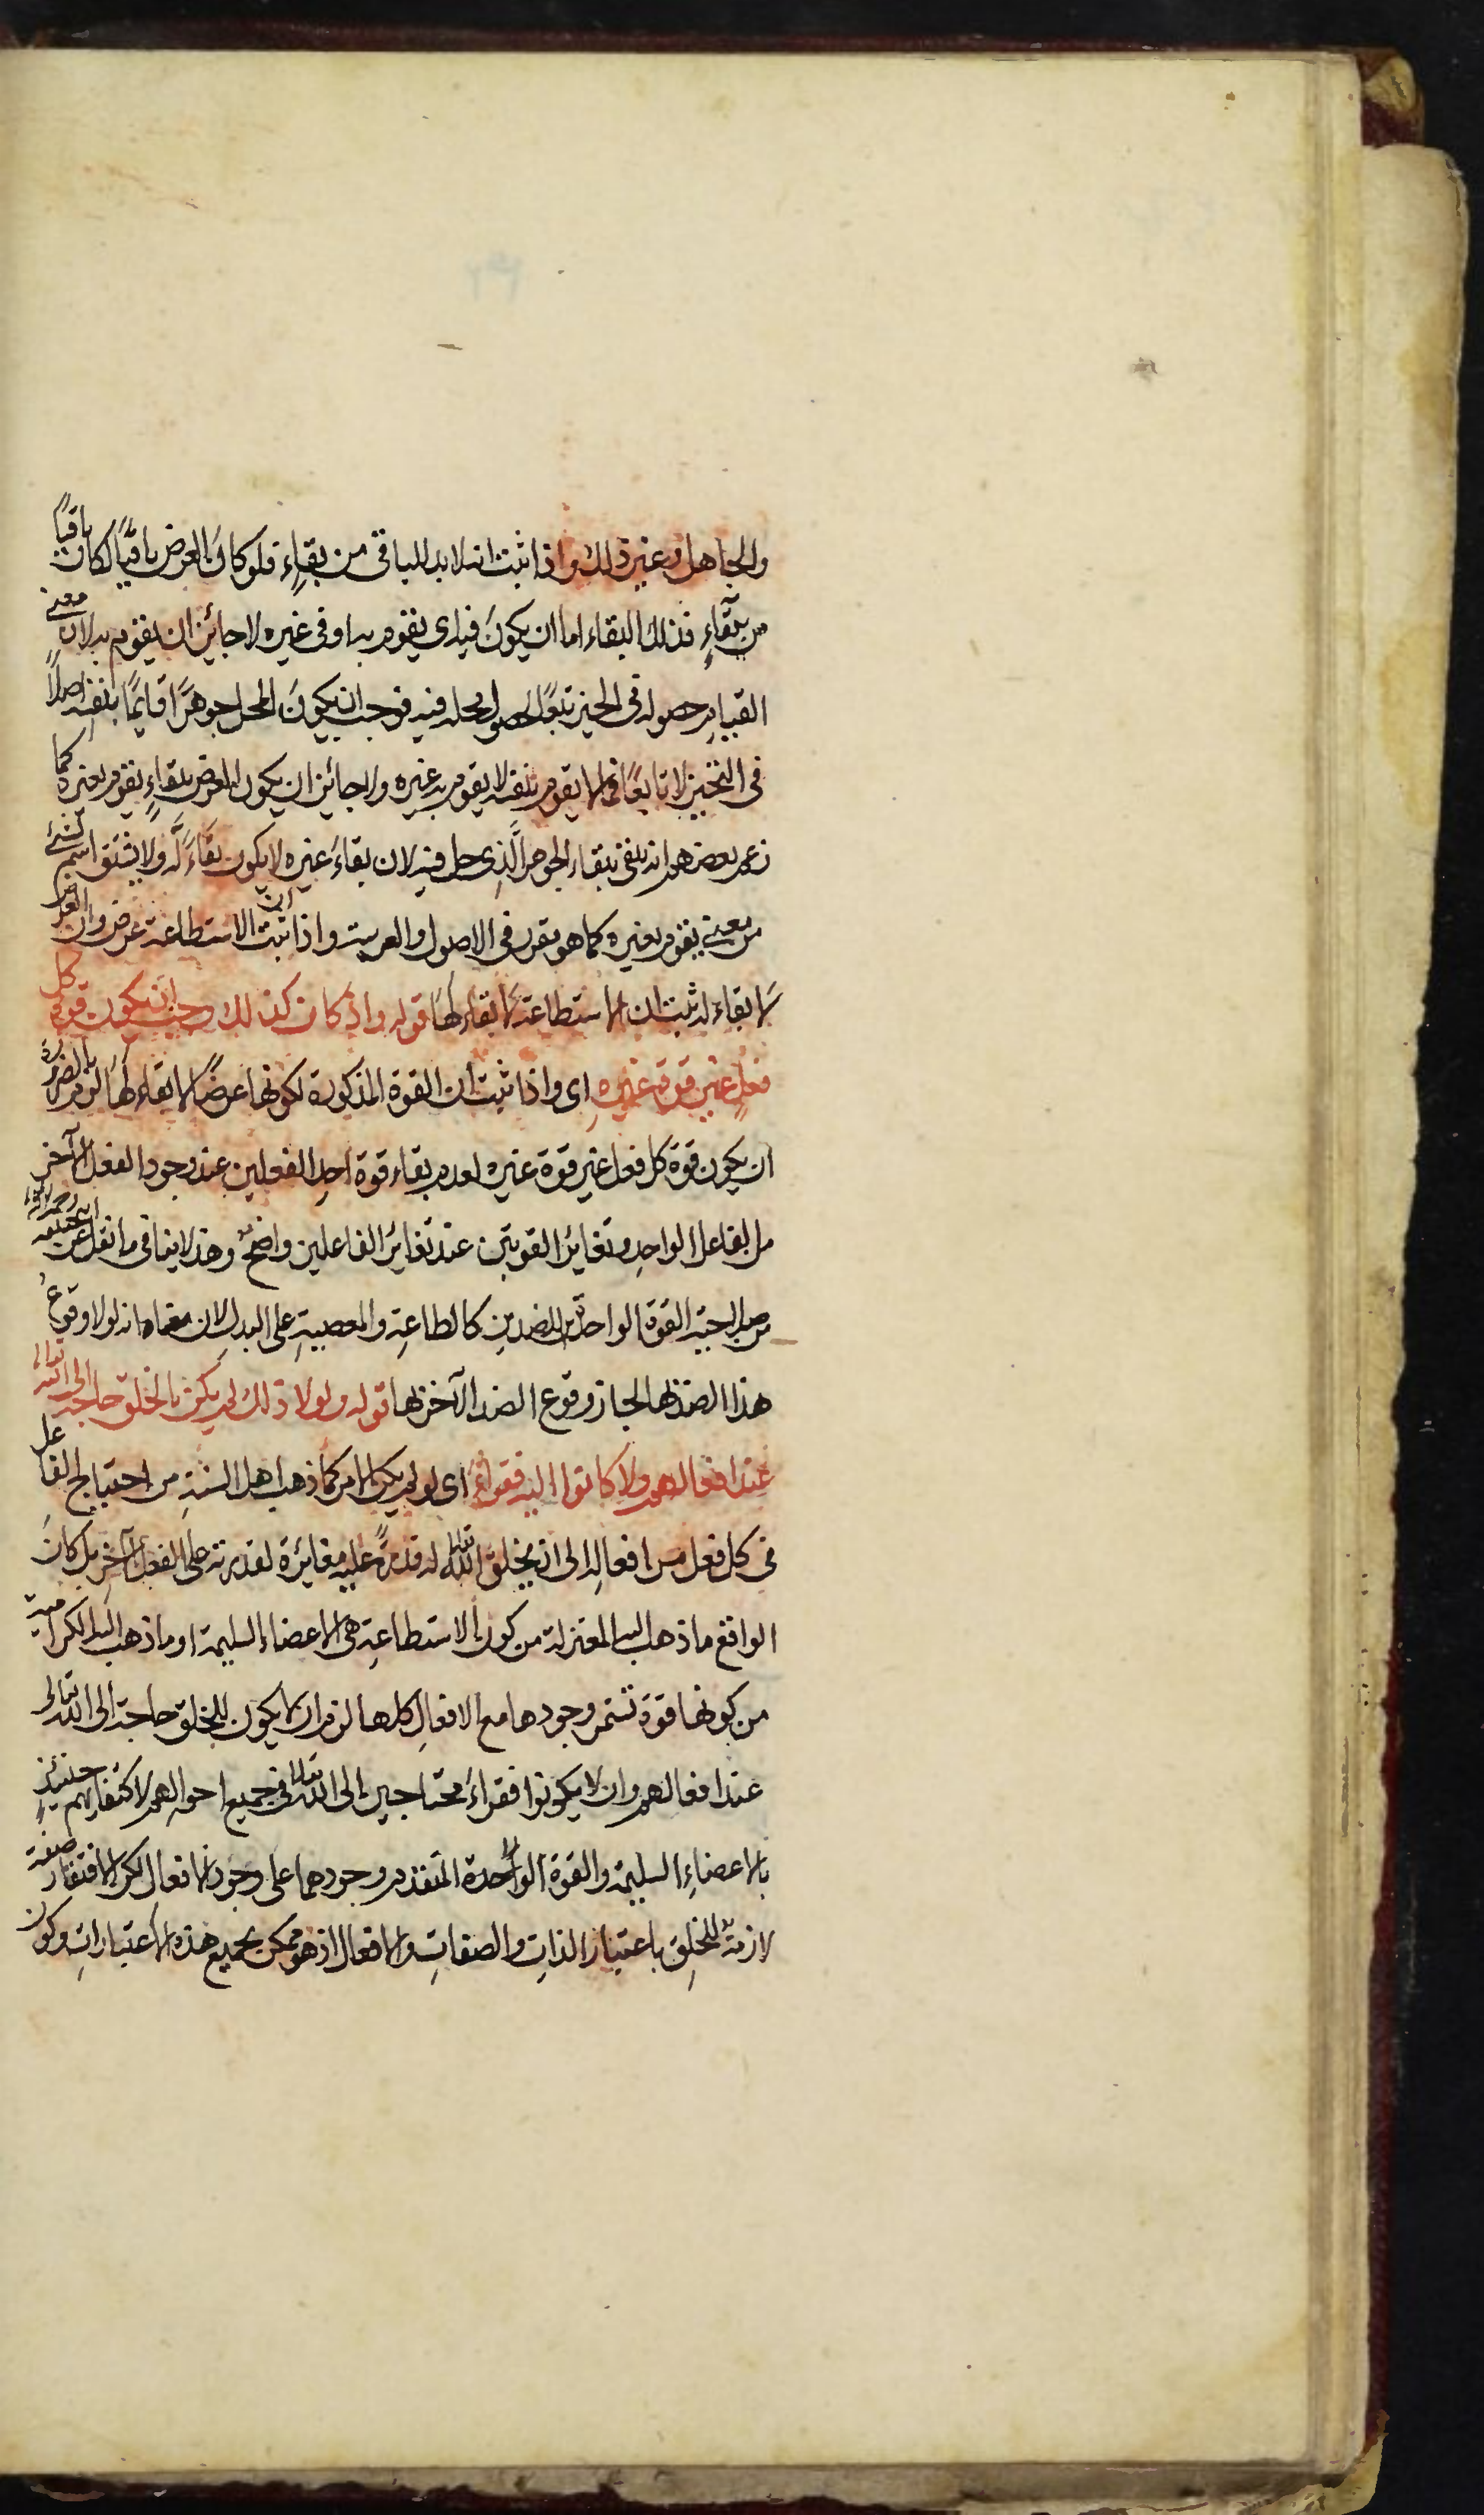 والجاهل وغير ذلك واذا ثبت انه لابد للباقى من بقاءٍ فلو كانَ العرض باقيًا لكان باقيًا
من بقآءٍ فذلك البقاء اما ان يكونَ فيه اى يقوم به او فى غيره لا جائز ان يقوم به لان معنى
القيامِ حصوله فى الحيز تبعًا لحصول محله فيه فوجب ان يكونَ المحل جوهرًا قايمًا بنفسه اصلاً
فى التحيز لا تابعًا فما لا يقوم بنفسه لا يقوم به غيره ولا جائز ان يكون العرض بقاءٍ يقوم بغيره كما
زعم بعضهم انه يبقى ببقاء الجوهر الَّذِى حل فيه لان بقاءَ غيره لا يكون بقاءَ لَّه ولا يشتق اسم لشئ
من معنى يقوم بغيره كما هو مقرر فى الاصول والعربية واذا ثبت ان الاستطاعة عرض وان العرض
لا بقاء له ثبت ان الاستطاعة لا بقاء لها قوله واذ كان كذلك وجب ان تكون قوة كل
فعلٍ غير قوة غيرهِ اى واذا ثبت ان القوة المذكورة لكونها عرضًا لا بقاء لها لزم بالضرورة
ان يكون قوة كل فعل غير قوة غيره لعدم بقاء قوة احدِ الفعلين عند وجود الفعل الآخر
من الفاعل الواحدِ وتغاير القوتين عند تغاير الفاعلين واضحٌ وهذا لا ينافى ما نقل عن ابى حنيفة رحمه الله
من صلاحية القوة الواحدة للضدين كالطاعةِ والمعصيةِ على البدل لان معناه انه لولا وقوعُ
هذا الضد بها لجاز وقوع الضد الآخر بها قوله ولولا ذلك لم يكن بالخلق حاجة الى الله تعالى
عند افعالهم ولا كانوا اليه فقراءَ اى لو لم يكن الامر كما ذهب اهل السنةِ من احتياج الفاعل
فى كل فعل من افعالِه الى ان يخلق الله تعالى له قدرةً عليه مغائرة لقدرته على الفعل الآخرِ بل كانَ
الواقع ما ذهب اليه المعتزلة من كون الاستطاعةِ هى الاعضاء السليمة او ما ذهب اليه الكرامية
من كونها قوة تستمر وجودها مع الافعالِ كلها لزم ان لا يكون للخلق حاجة الى الله تعالى
عند افعالهم وان لا يكونوا فقراءَ محتاجين الى الله تعالى فى جميع احوالهم لاكتفائهم حينئذٍ
بالاعضاءِ السليمة والقوة الواحدة المتقدم وجودهما على وجود الافعال لكن الافتقار صفة
لازمة للخلقِ باعتبار الذاتِ والصفاتِ والافعال اذ هو ممكن بجميع هذه الاعتباراتِ وكون